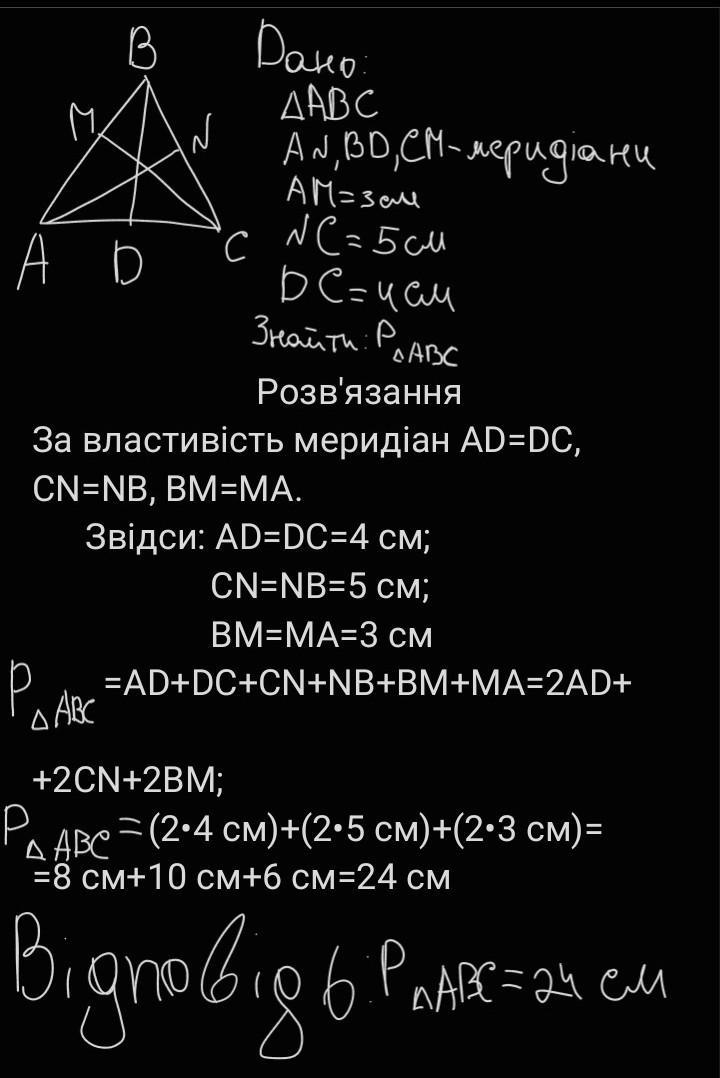 B
M
N
A
D
C
Дано:
△ABC
AN,BD,CM-меридіани
AM=3см
NC=5см
DC=4см
Знайти:P△ABC
Розв'язання
За властивість меридіан AD=DC,
CN=NB, BM=MA.
Звідси: AD=DC=4 см;
CN=NB=5 см;
BM=MA=3 см
P△ABC =AD+DC+CN+NB+BM+MA=2AD+
+2CN+2BM;
P△ABC=(2•4 см)+(2•5 см)+(2•3 см)=
=8 см+10 см+6 см=24 см
Відповідь:P△ABC=24 см